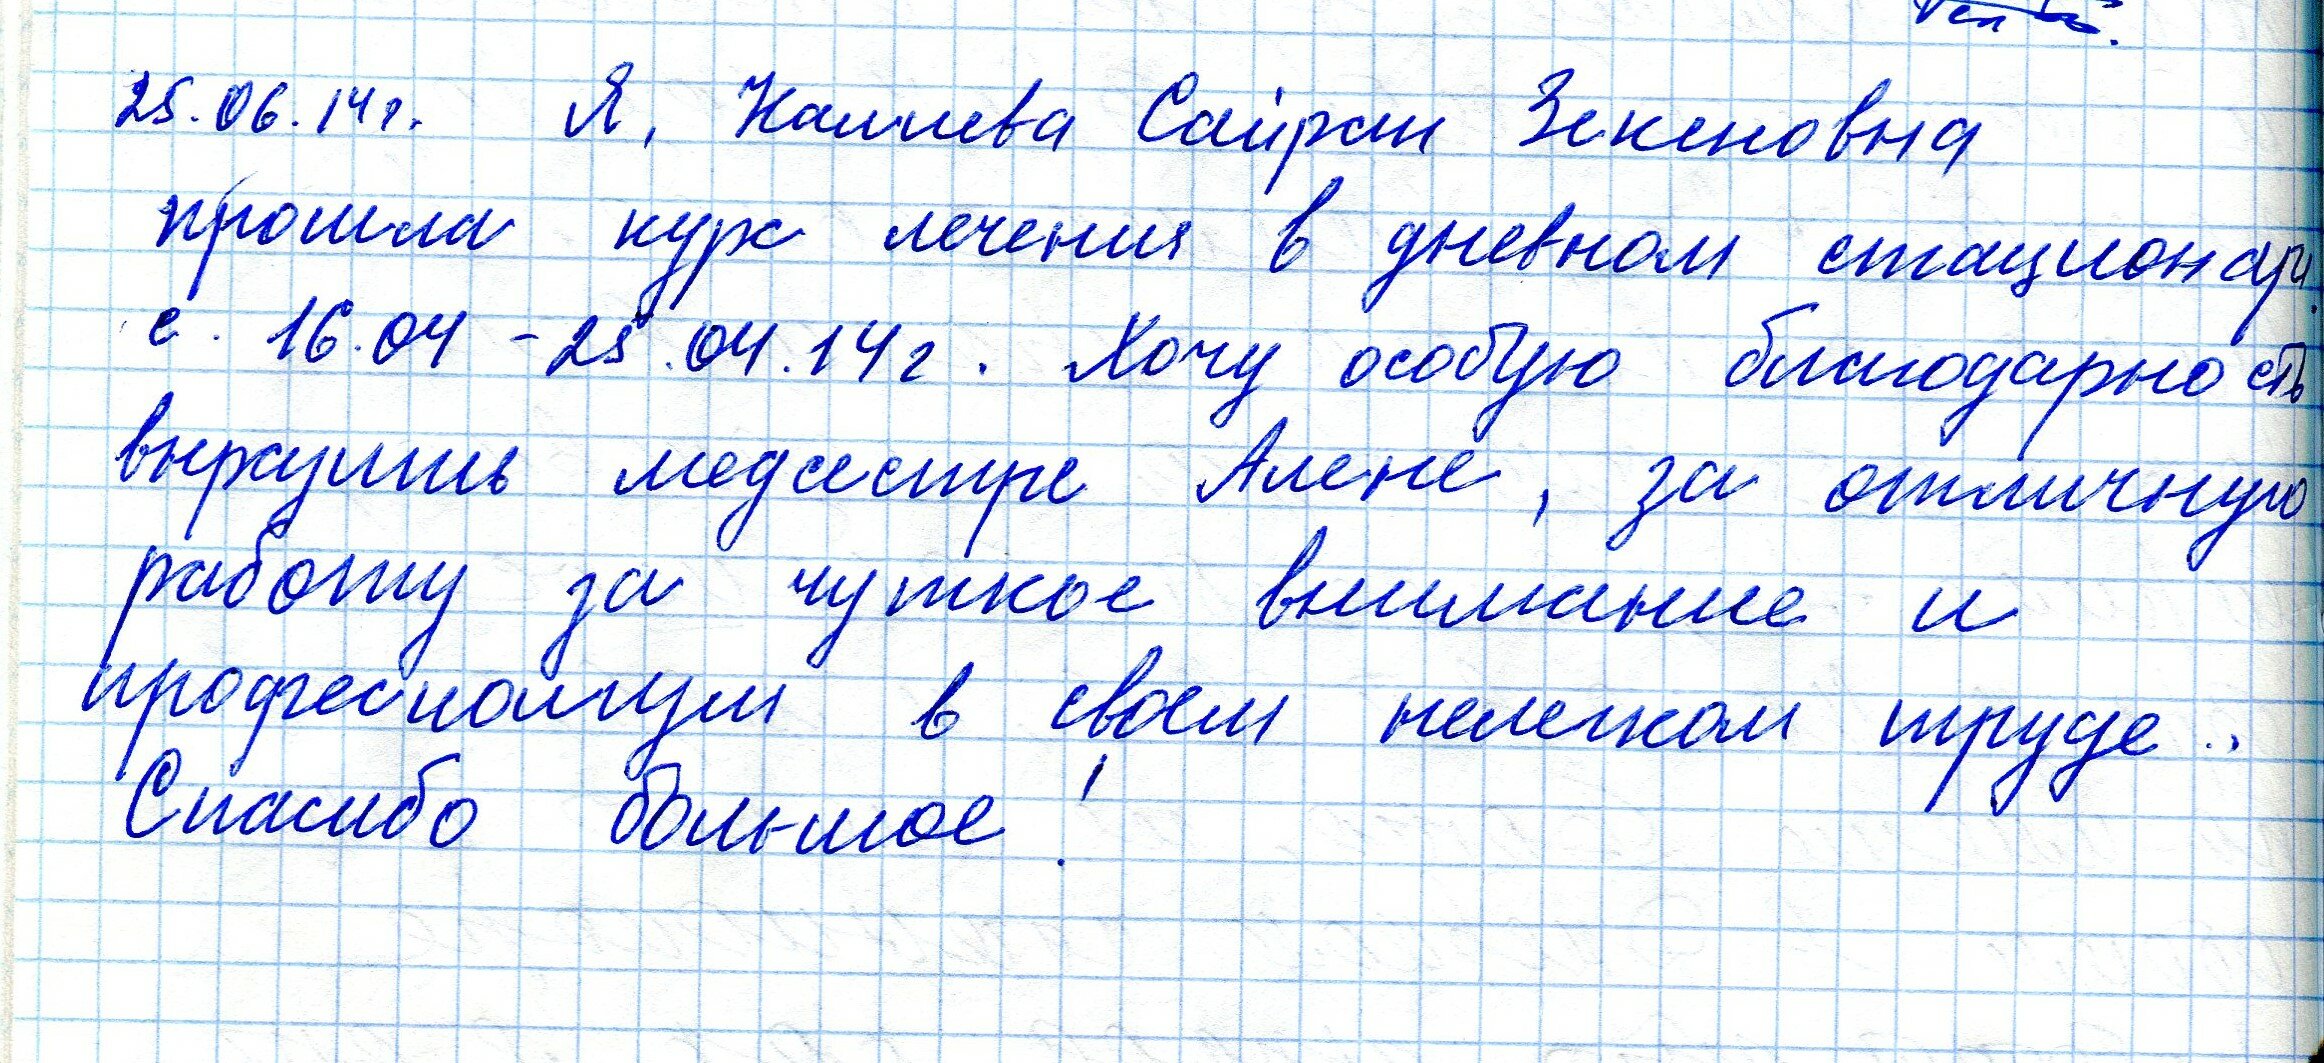 25.06.14г. Я, Калиева Сайран Зекеновна
прошла курс лечения в дневном стационаре
с. 16.04 - 25.04.14г. Хочу особую благодарность
выразить медсестре Алене, за отличную
работу за чуткое внимание и
професионализм в своем нелегком труде..
Спасибо большое!